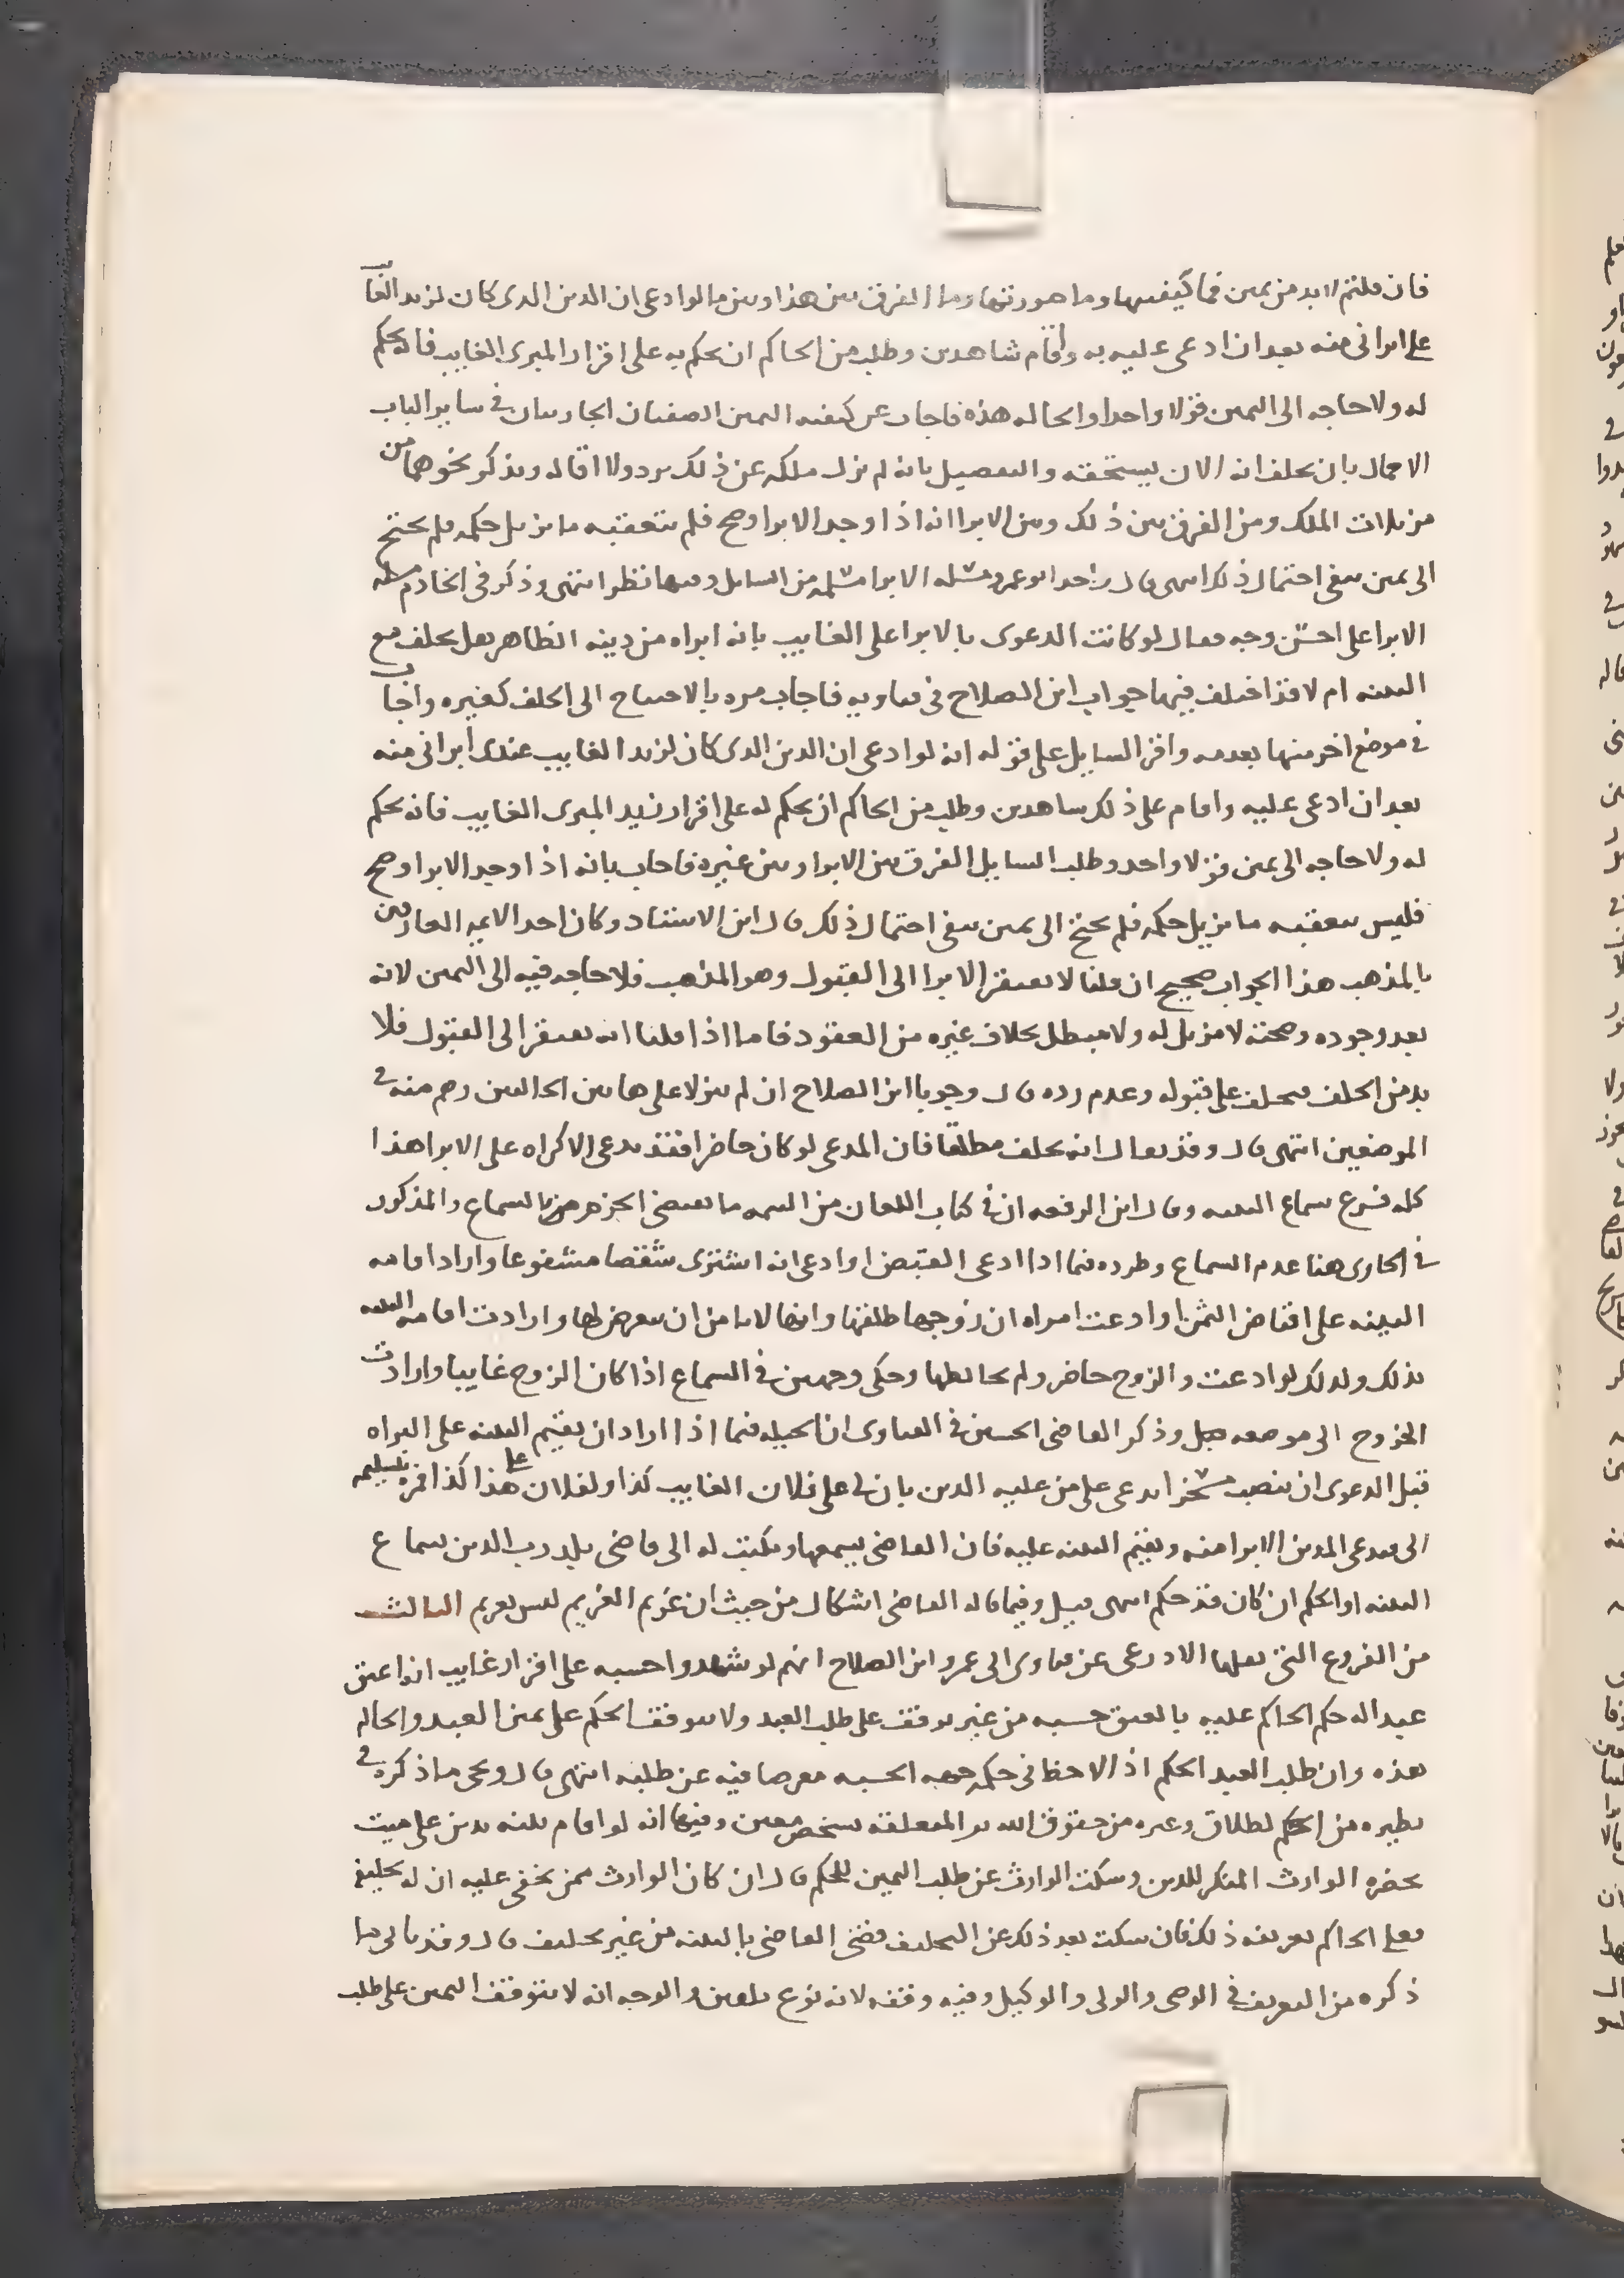 فان قلتم لا بد من يمين فما كيفيتها وما صورتها وما الفرق بين هذا وبين ما لو ادعى ان الدين الذى كان لزيد الغايب
على ابرانى منه بعد ان ادعى عليه به واقام شاهدين وطلب من الحاكم ان يحكم به على اقرار المبرى الغايب فانه يحكم
له ولا حاجه الى اليمين قولا واحدا والحاله هذه فاجاب عن كيفيه اليمين الصفتان الجاريتان فى ساير الباب
الاجمال بان يحلف انه الان يستحقه والتفصيل بانه لم يزل ملكه عن ذلك برد ولا اقاله ويذكر نحوهما من
مزيلات الملك ومن الفرق بين ذلك وبين الابرا انه اذا وجد الابرا وصح فلم يتعقبه ما يزيل حكمه فلم يحتج
الى يمين ينفى احتمال ذلك انتهى قال ابو عمرو مسله الابرا مسلمه من السايل وفيها نظر انتهى وذكر فى الخادم مسله
الابرا على احسن وجه فقال لو كانت الدعوى بالابرا على الغايب بانه ابراه من دينه الظاهر هل يحلف مع
البينه ام لا قد اختلف فيها جواب ابن الصلاح فى فتاويه فاجاب مره بالاحتياج الى الحلف كغيره واجاب
فى موضع اخر منها بعدمه واقر السايل على قوله انه لو ادعى ان الدين الذى كان لزيد الغايب عندى ابرانى منه
بعد ان ادعى عليه واقام على ذلك شاهدين وطلب من الحاكم ان يحكم له على اقرار زيد المبرى الغايب فانه يحكم
له ولا حاجه الى يمين قولا واحد وطلب السايل الفرق بين الابرا وبين غيره فاجاب بانه اذا وجد الابرا وصح
فليس يعقبه ما يزيل حكمه فلم يحتج الى يمين ينفى احتمال ذلك قال ابن الاستاد وكان احد الايمه العارفين
بالمذهب هذا الجواب صحيح ان قلنا لا يفتقر الابرا الى القبول وهو المذهب فلا حاجه فيه الى اليمين لانه
بعد وجوده وصحته لا مزيل له ولا مبطل بخلاف غيره من العقود فاما اذا قلنا انه يفتقر الى القبول فلا
بد من الحلف فيحلف على قبوله وعدم رده قال وجوبا ابن الصلاح ان لم ينزلا على هاتين الحالتين وهم منه فى
الموضعين انتهى قال وقد يقال انه يحلف مطلقا فان المدعى لو كان حاضرا فقد يدعى الاكراه على الابرا هذا
كله فرع سماع البينه وقال ابن الرفعه ان فى كتاب اللعان من التتمه ما يقتضى الجزم بالسماع والمذكور
فى الحاوى هنا عدم السماع وطرده فيما اذا ادعى القبض او ادعى انه اشترى شقصا مشفوعا واراد اقامه
البينه على اقباض الثمن او ادعت امراه ان زوجها طلقها وانها لا تامن ان يتعرض لها وارادت اقامه البينه
بذلك وكذلك لو ادعت والزوج حاضر ولم يخالطها وحكى وجهين فى السماع اذا كان الزوج غايبا وارادت
الخروج الى موضعه قبل وذكر القاضى الحسين فى الفتاوى ان الحيله فيما اذا اراد ان يقيم البينه على البراه
قبل الدعوى ان ينصب مسخرا يدعى على من عليه الدين بان لى على فلان الغايب كذا ولفلان على هذا كذا فمره بتسليمه
الى فيدعى المدين الابرا منه ويقيم البينه عليه فان القاضى يسمعها ويكتب له الى قاضى بلد رب الدين بسماع
البينه او الحكم ان كان قد حكم انتهى قيل وفيما قاله القاضى اشكال من حيث ان غريم الغريم ليس بغريم الثالث
من الفروع التى نقلها الاذرعى عن فتاوى ابى عمرو ابن الصلاح انهم لو شهدوا حسبه على اقرار غايب انه اعتق
عبدا له حكم الحاكم عليه بالعتق حسبه من غير توقف على طلب العبد ولا يتوقف الحكم على يمين العبد والحاله
هذه وان طلب العبد الحكم اذ لاحظ فى حكمه جهه الحسبه معرضا فيه عن طلبه انتهى قال ويجى ما ذكره فى
نظيره من الحكم لطلاق وغيره من حقوق الله تعالى المتعلقه بشخص معين وفيها انه لو اقام بينه بدين على ميت
بحضره الوارث المنكر للدين وسكت الوارث عن طلب اليمين للحكم قال ان كان الوارث ممن يخفى عليه ان له تحليفه
فعلى الحاكم تعريفه ذلك فان سكت بعد ذلك عن التحليف قضى القاضى بالبينه من غير تحليف قال وقد ياتى ما
ذكره من التعريف فى الوصى والولى والوكيل وفيه وقفه لانه نوع تلقين والوجه انه لا يتوقف اليمين على طلب